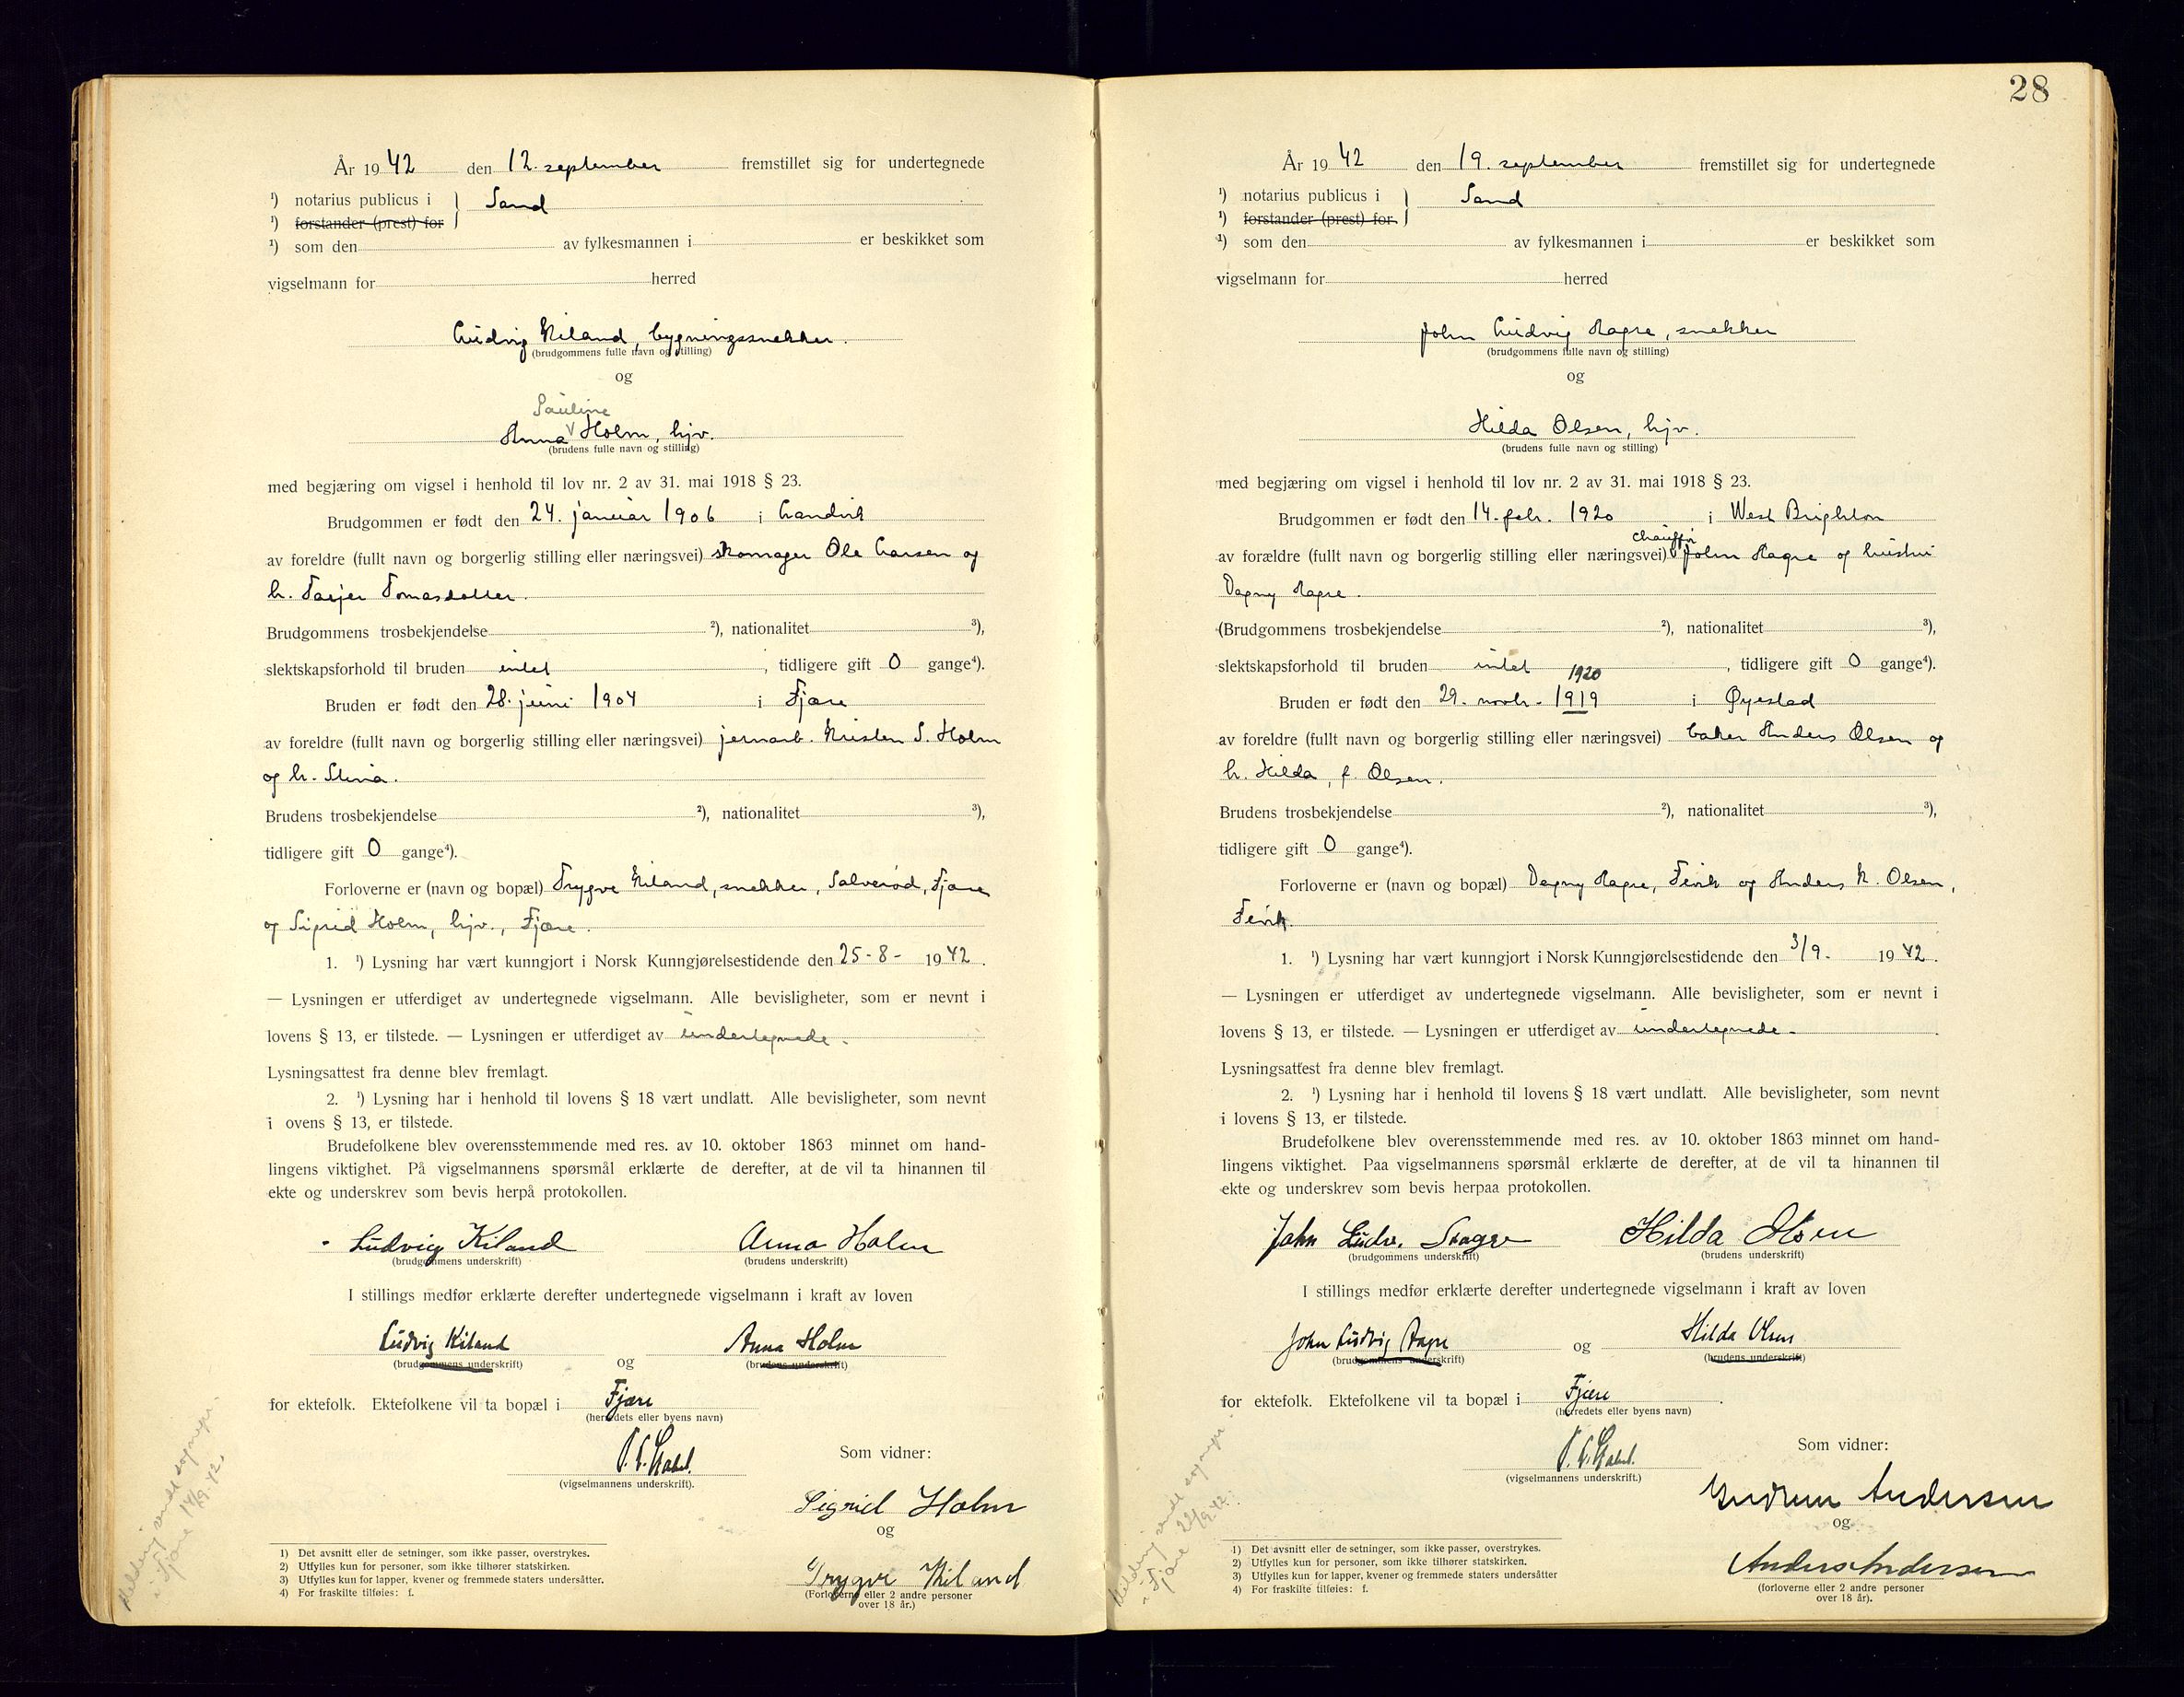 År 1942 den 12. september fremstillet sig for undertegnede
¹) notarius publicus i } Sand
¹) forstander (prest) for
¹) som den av fylkesmannen i er beskikket som
vigselmann for herred
Ludvig Kiland, bygningssnekker.
(brudgommens fulle navn og stilling)
og
Pauline
Anna v Holm, hjv.
(brudens fulle navn og stilling)
med begjæring om vigsel i henhold til lov nr. 2 av 31. mai 1918 § 23.
Brudgommen er født den 24. januar 1906 i Landvik
av foreldre (fullt navn og borgerlig stilling eller næringsvei) skomager Ole Larsen og
h. Tarjer Tomasdatter.
Brudgommens trosbekjendelse ²), nationalitet ³),
slektskapsforhold til bruden intet, tidligere gift 0 gange⁴).
Bruden er født den 28. juni 1904 i Fjære
av foreldre (fullt navn og borgerlig stilling eller næringsvei) jernarb. Kristen S. Holm
og h. Stina.
Brudens trosbekjendelse ²), nationalitet ³),
tidligere gift 0 gange⁴).
Forloverne er (navn og bopæl) Trygve Kiland, snekker, Salverød, Fjære
og Sigrid Holm, hjv., Fjære.
1. ¹) Lysning har vært kunngjort i Norsk Kunngjørelsestidende den 25-8- 1942.
— Lysningen er utferdiget av undertegnede vigselmann. Alle bevisligheter, som er nevnt i
lovens § 13, er tilstede. — Lysningen er utferdiget av undertegnede.
Lysningsattest fra denne blev fremlagt.
2. ¹) Lysning har i henhold til lovens § 18 vært undlatt. Alle bevisligheter, som nevnt
i ovens § 13, er tilstede.
Brudefolkene blev overensstemmende med res. av 10. oktober 1863 minnet om hand-
lingens viktighet. På vigselmannens spørsmål erklærte de derefter, at de vil ta hinannen til
ekte og underskrev som bevis herpå protokollen.
Ludvig Kiland Anna Holm
(brudgommens underskrift) (brudens underskrift)
I stillings medfør erklærte derefter undertegnede vigselmann i kraft av loven
Ludvig Kiland og Anna Holm
(brudgommens underskrift) (brudens underskrift)
for ektefolk. Ektefolkene vil ta bopæl i Fjære
(herredets eller byens navn)
(vigselmannens underskrift).
Som vidner:
Sigrid Holm
og
Trygve Kiland
(Forloverne eller 2 andre personer
over 18 år.)
Melding sendt sognepr.
i Fjære 14/9.42.
1) Det avsnitt eller de setninger, som ikke passer, overstrykes.
2) Utfylles kun for personer, som ikke tilhører statskirken.
3) Utfylles kun for lapper, kvener og fremmede staters undersåtter.
4) For fraskilte tilføies: f.
28
År 1942 den 19. september fremstillet sig for undertegnede
¹) notarius publicus i } Sand
¹) forstander (prest) for
¹) som den av fylkesmannen i er beskikket som
vigselmann for herred
John Ludvig Aagre, snekker
(brudgommens fulle navn og stilling)
og
Hilda Olsen, hjv.
(brudens fulle navn og stilling)
med begjæring om vigsel i henhold til lov nr. 2 av 31. mai 1918 § 23.
Brudgommen er født den 14. febr. 1920 i West Brighton
chauffør
av forældre (fullt navn og borgerlig stilling eller næringsvei) v John Aagre og hustru
Dagny Aagre.
(Brudgommens trosbekjendelse ²), nationalitet ³),
slektskapsforhold til bruden intet, tidligere gift 0 gange⁴).
1920
Bruden er født den 29. novbr. 1919 i Øyestad
av foreldre (fullt navn og borgerlig stilling eller næringsvei) baker Anders Olsen og
h. Hilda, f. Olsen.
Brudens trosbekjendelse ²), nationalitet ³),
tidligere gift 0 gange⁴).
Forloverne er (navn og bopæl) Dagny Aagre, Fevik og Anders K. Olsen,
Fevik.
1. ¹) Lysning har vært kunngjort i Norsk Kunngjørelsestidende den 3/9. 1942.
— Lysningen er utferdiget av undertegnede vigselmann. Alle bevisligheter, som er nevnt i
lovens § 13, er tilstede. — Lysningen er utferdiget av undertegnede.
Lysningsattest fra denne blev fremlagt.
2. ¹) Lysning har i henhold til lovens § 18 vært undlatt. Alle bevisligheter, som nevnt
i lovens § 13, er tilstede.
Brudefolkene blev overensstemmende med res. av 10. oktober 1863 minnet om hand-
lingens viktighet. Paa vigselmannens spørsmål erklærte de derefter, at de vil ta hinannen til
ekte og underskrev som bevis herpaa protokollen.
John Ludv. Aagre Hilda Olsen
(brudgommens underskrift) (brudens underskrift)
I stillings medfør erklærte derefter undertegnede vigselmann i kraft av loven
John Ludvig Aagre og Hilda Olsen
(brudgommens underskrift) (brudens underskrift)
for ektefolk. Ektefolkene vil ta bopæl i Fjære.
(herredets eller byens navn)
(vigselmannens underskrift.)
Som vidner:
Gudrun Andersen
og
Anders Andersen
(forloverne eller 2 andre personer
over 18 år).
Melding sendt sognepr.
i Fjære 22/9.42.
1) Det avsnitt eller de setninger, som ikke passer, overstrykes.
2) Utfylles kun for personer, som ikke tilhører statskirken.
3) Utfylles kun for lapper, kvener og fremmede staters undersåtter
4) For fraskilte tilføies: f.